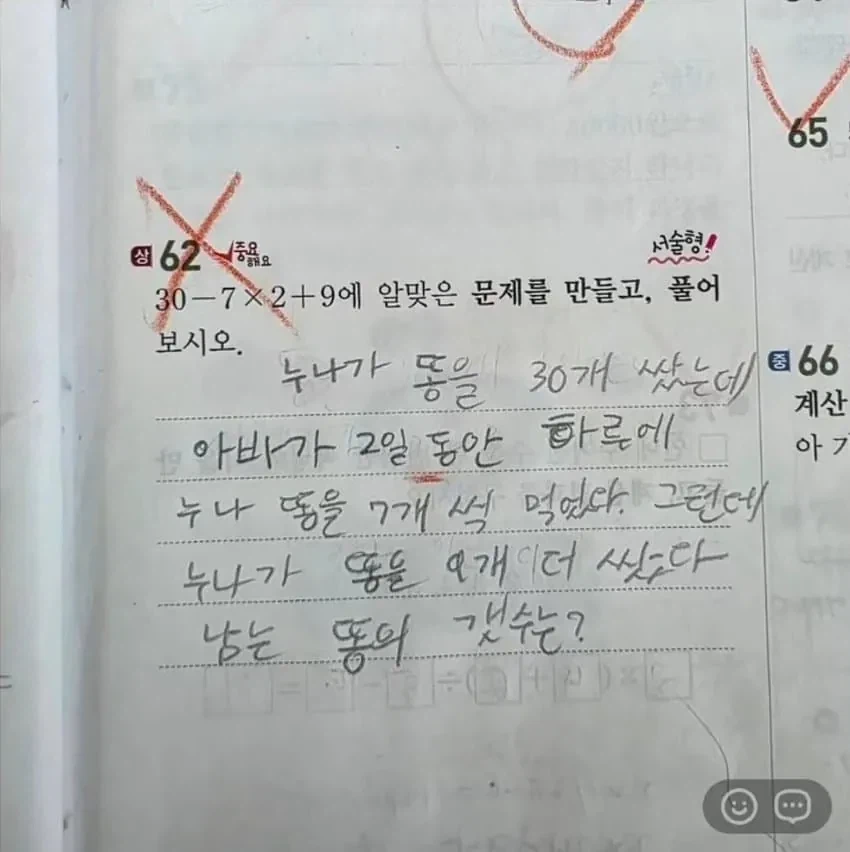 65
상 62 중요해요
서술형!
30-7×2+9에 알맞은 문제를 만들고, 풀어
보시오.
누나가 똥을 30개 쌌는데
아바가 2일 동안 하루에
누나 똥을 7개 씩 먹었다. 그런데
누나가 똥을 9개 더 쌌다
남는 똥의 갯수는?
중 66
계산
아 기